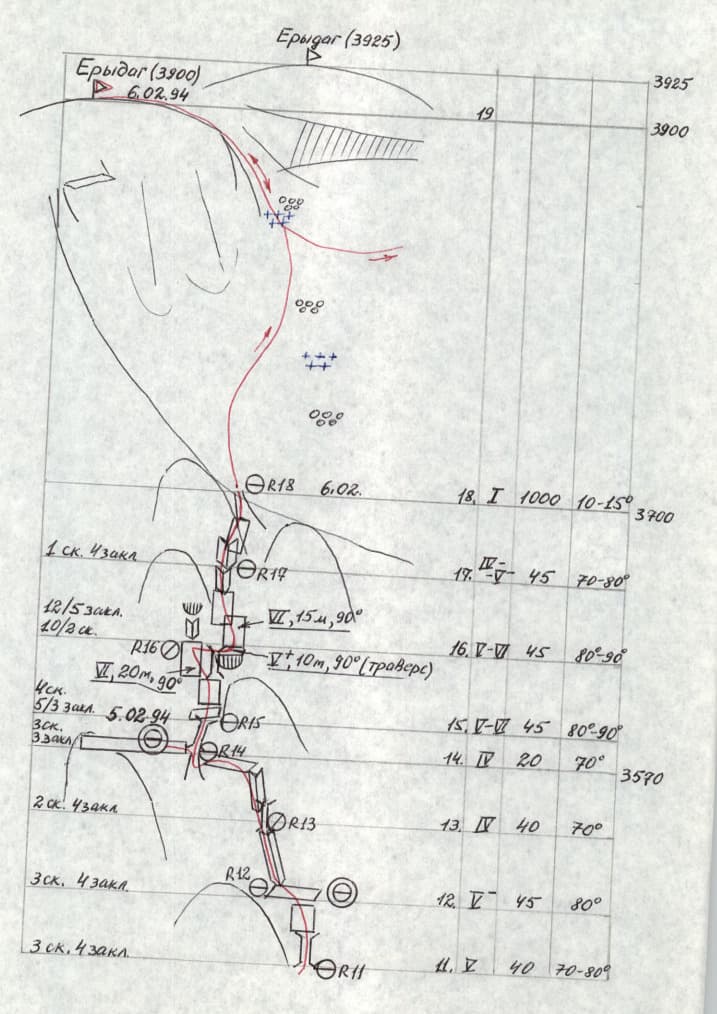 Ерыдаг (3925)
3925
Ерыдаг (3900)
6.02.94
19
3900
R18 6.02.
18. I 1000 10-15°
3700
1 ск. 4 закл
R17
17. IV-V- 45 70-80°
12/5 закл.
10/2 ск.
VI, 15м, 90°
R16
16. V-VI 45 80°-90°
V+, 10m, 90° (траверс)
VI, 20m, 90°
4ск.
5/3 закл.
5.02.94
R15
15. V-VI 45 80°-90°
3ск.
3 закл
R14
14. IV 20 70°
3570
2 ск. 4 закл
R13
13. IV 40 70°
3 ск. 4 закл.
R12
12. V- 45 80°
3 ск. 4 закл.
R11
11. V 40 70-80°